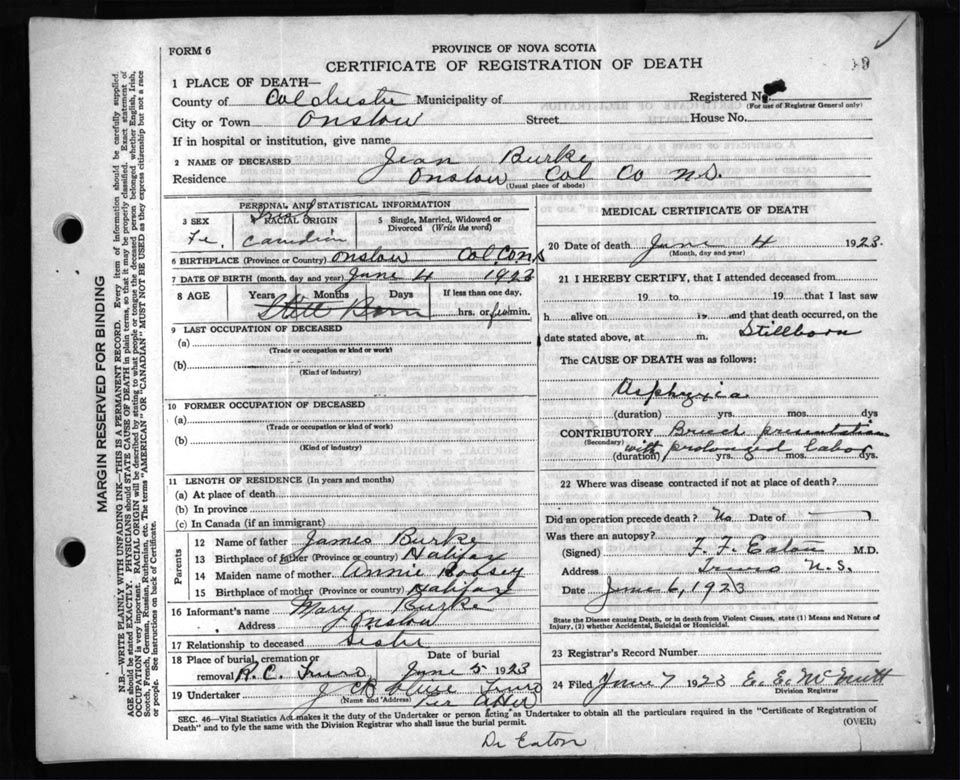 FORM 6
PROVINCE OF NOVA SCOTIA
CERTIFICATE OF REGISTRATION OF DEATH
1 PLACE OF DEATH—
County of Colchester Municipality of
Registered No.
(For use of Registrar General only)
City or Town Onslow Street House No.
If in hospital or institution, give name
2 NAME OF DECEASED Jean Burke
Residence Onslow Col Co N.S.
(Usual place of abode)
PERSONAL AND STATISTICAL INFORMATION
3 SEX
Fe.
RACIAL ORIGIN
Irish
Canadian
5 Single, Married, Widowed or Divorced (Write the word)
6 BIRTHPLACE (Province or Country) Onslow Col. Co. N.S
7 DATE OF BIRTH (month, day and year) June 4 1923
8 AGE Years Months Days If less than one day,
Still Born hrs. or few min.
9 LAST OCCUPATION OF DECEASED
(a)
(Trade or occupation or kind or work)
(b)
(Kind of industry)
10 FORMER OCCUPATION OF DECEASED
(a)
(Trade or occupation or kind or work)
(b)
(Kind of industry)
11 LENGTH OF RESIDENCE (In years and months)
(a) At place of death
(b) In province
(c) In Canada (if an immigrant)
Parents
12 Name of father James Burke
13 Birthplace of father (Province or country) Halifax
14 Maiden name of mother Annie
15 Birthplace of mother (Province or country) Halifax
16 Informant's name Mary Burke
Address Onslow
17 Relationship to deceased Sister
18 Place of burial, cremation or removal R.C. Truro
Date of burial
June 5 1923
19 Undertaker J Truro
(Name and Address)
MEDICAL CERTIFICATE OF DEATH
20 Date of death June 4 1923.
(Month, day and year)
21 I HEREBY CERTIFY, that I attended deceased from
19 to 19 that I last saw
h alive on 19 and that death occurred, on
date stated above, at m. Stillborn
The CAUSE OF DEATH was as follows:
Asphyxia
(duration) yrs. mos. dys
CONTRIBUTORY Breech presentation
(Secondary) with prolonged labor
(duration) yrs. mos. dys.
22 Where was disease contracted if not at place of death?
Did an operation precede death? No Date of
Was there an autopsy?
(Signed) F. F. Eaton M.D.
Address Truro N.S.
Date June 6, 1923
State the Disease causing Death, or in death from Violent Causes, state (1) Means and Nature of
Injury, (2) whether Accidental, Suicidal or Homicidal.
23 Registrar's Record Number
24 Filed June 7 1923 E. E. McNutt
Division Registrar
SEC. 46—Vital Statistics Act makes it the duty of the Undertaker or person acting as Undertaker to obtain all the particulars required in the "Certificate of Registration of
Death" and to fyle the same with the Division Registrar who shall issue the burial permit.
(OVER)
Dr Eaton
MARGIN RESERVED FOR BINDING
N.B.—WRITE PLAINLY WITH UNFADING INK—THIS IS A PERMANENT RECORD. Every item of information should be carefully supplied.
AGE should be stated EXACTLY. PHYSICIANS should STATE CAUSE OF DEATH in plain terms, so that it may be properly classified. Exact statement of
OCCUPATION is very important. RACIAL ORIGIN will be described by stating to what people or tongue the deceased person belonged whether English, Irish,
Scotch, French, German, Russian, Ruthenian, etc. The terms "AMERICAN" OR "CANADIAN" MUST NOT BE USED as they express citizenship but not a race
or people. See instructions on back of Certificate.